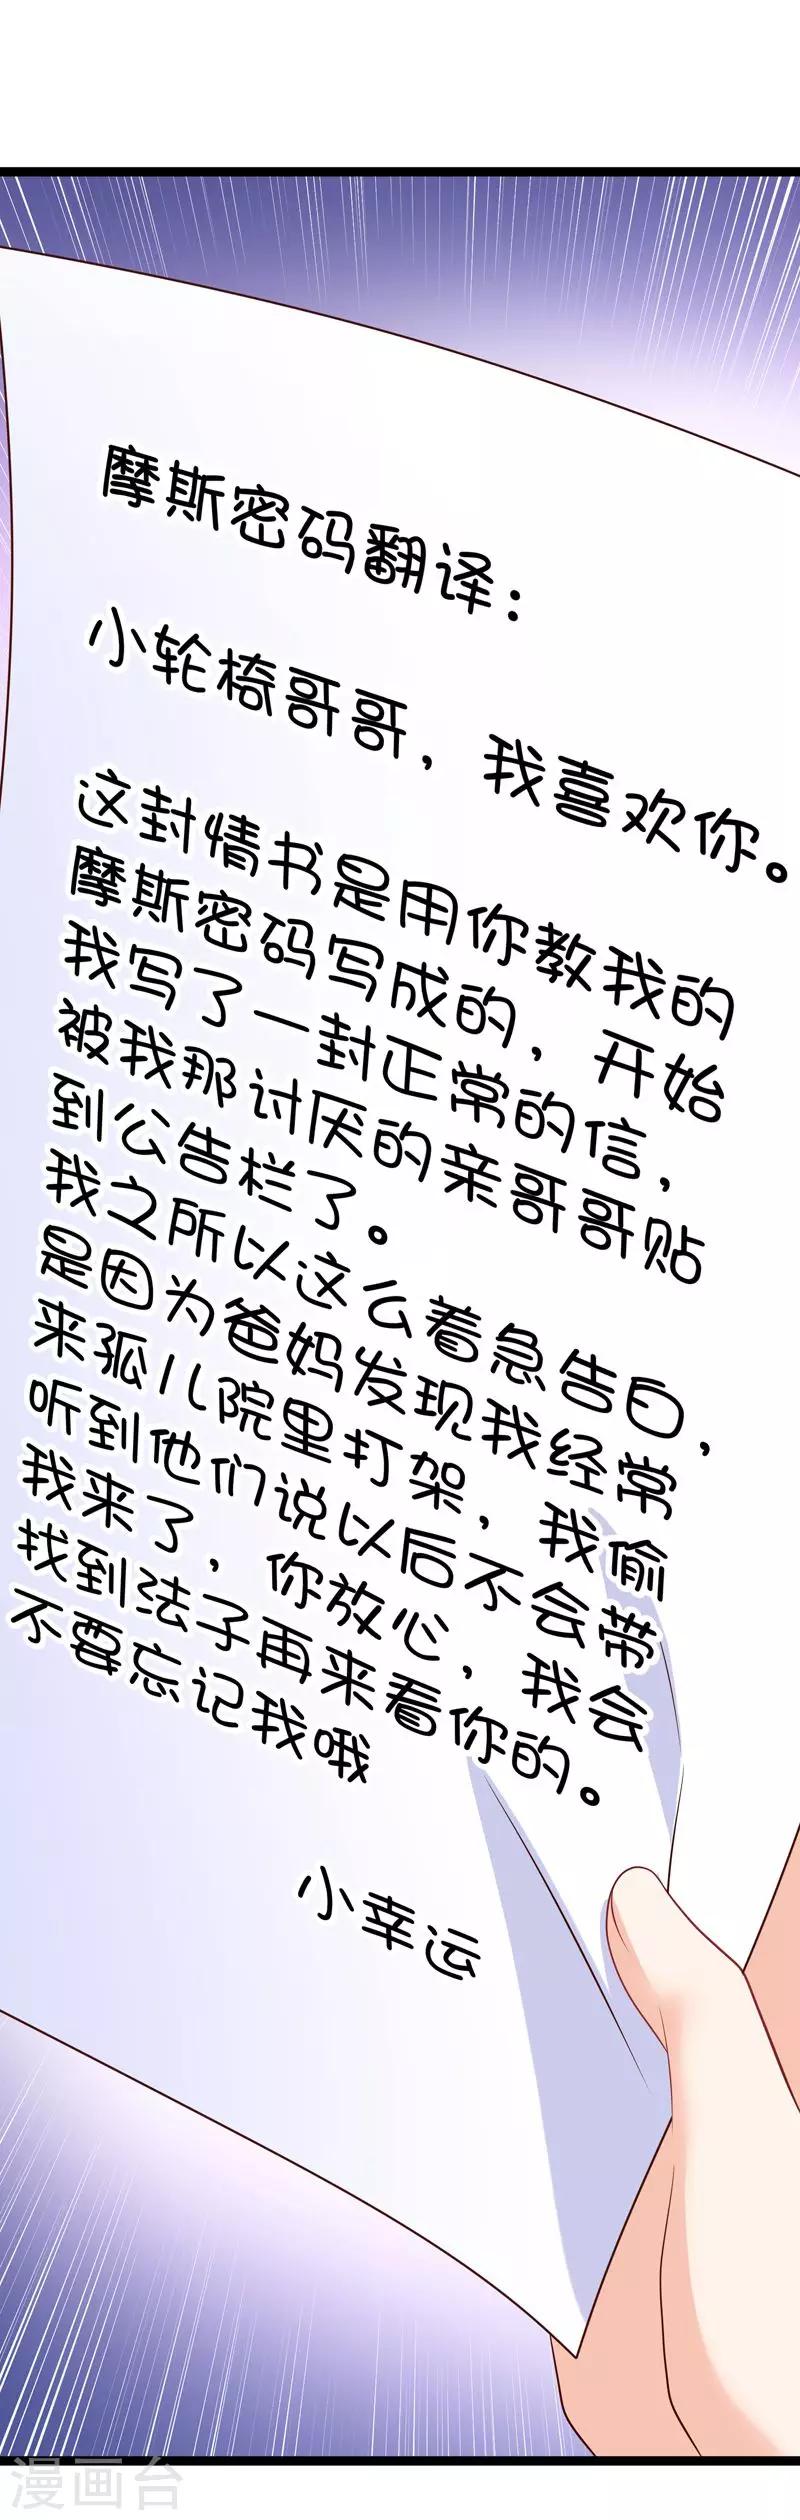 摩斯密码翻译：
小轮椅哥哥，我喜欢你。
这封情书是用你教我的
摩斯密码写成的，开始
我写了一封正常的信，
被我那讨厌的亲哥哥贴
到公告栏了。
我之所以这么着急告白，
是因为爸妈发现我经常
来孤儿院里打架，我偷
听到他们说以后不会带
我来了，你放心，我会
找到法子再来看你的。
不要忘记我哦
小幸运
漫画台